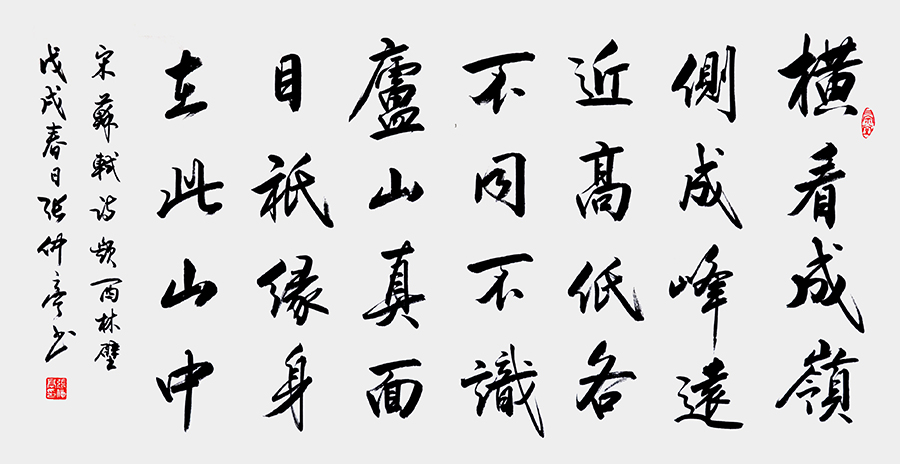 橫看成嶺
側成峰遠
近高低各
不同不識
廬山真面
目祇緣身
在此山中
宋蘇軾詩題西林壁
戊戌春日張仲亭书